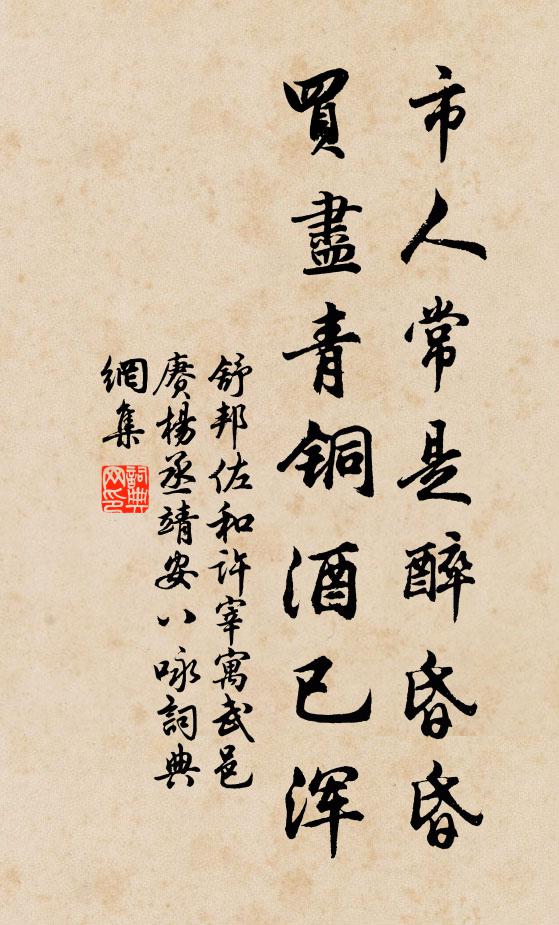 市人常是醉昏昏
買盡青铜酒已浑
舒邦佐和许宰寓武邑
赓楊丞靖安八咏詞典
網集
詞典
网印